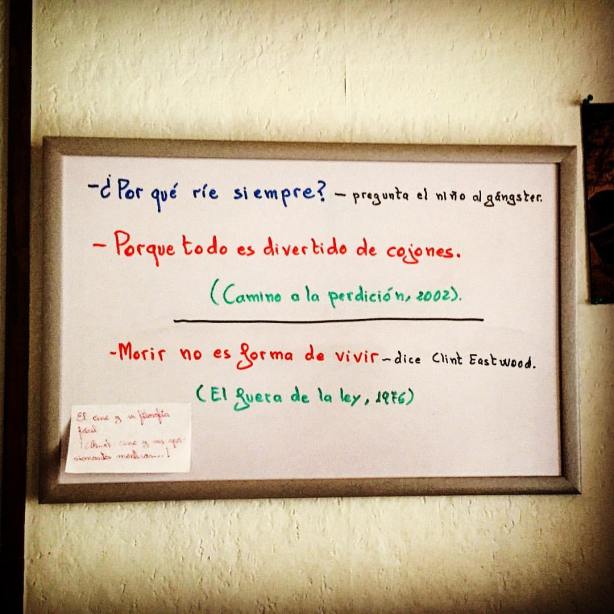 -¿Por qué ríe siempre? - pregunta el niño al gángster.
- Porque todo es divertido de cojones.
(Camino a la perdición, 2002).
-Morir no es forma de vivir - dice Clint Eastwood.
(El fuera de la ley, 1976)
El cine y su filosofía
fácil.
¡ el cine y sus apa-
sionantes mentiras...!